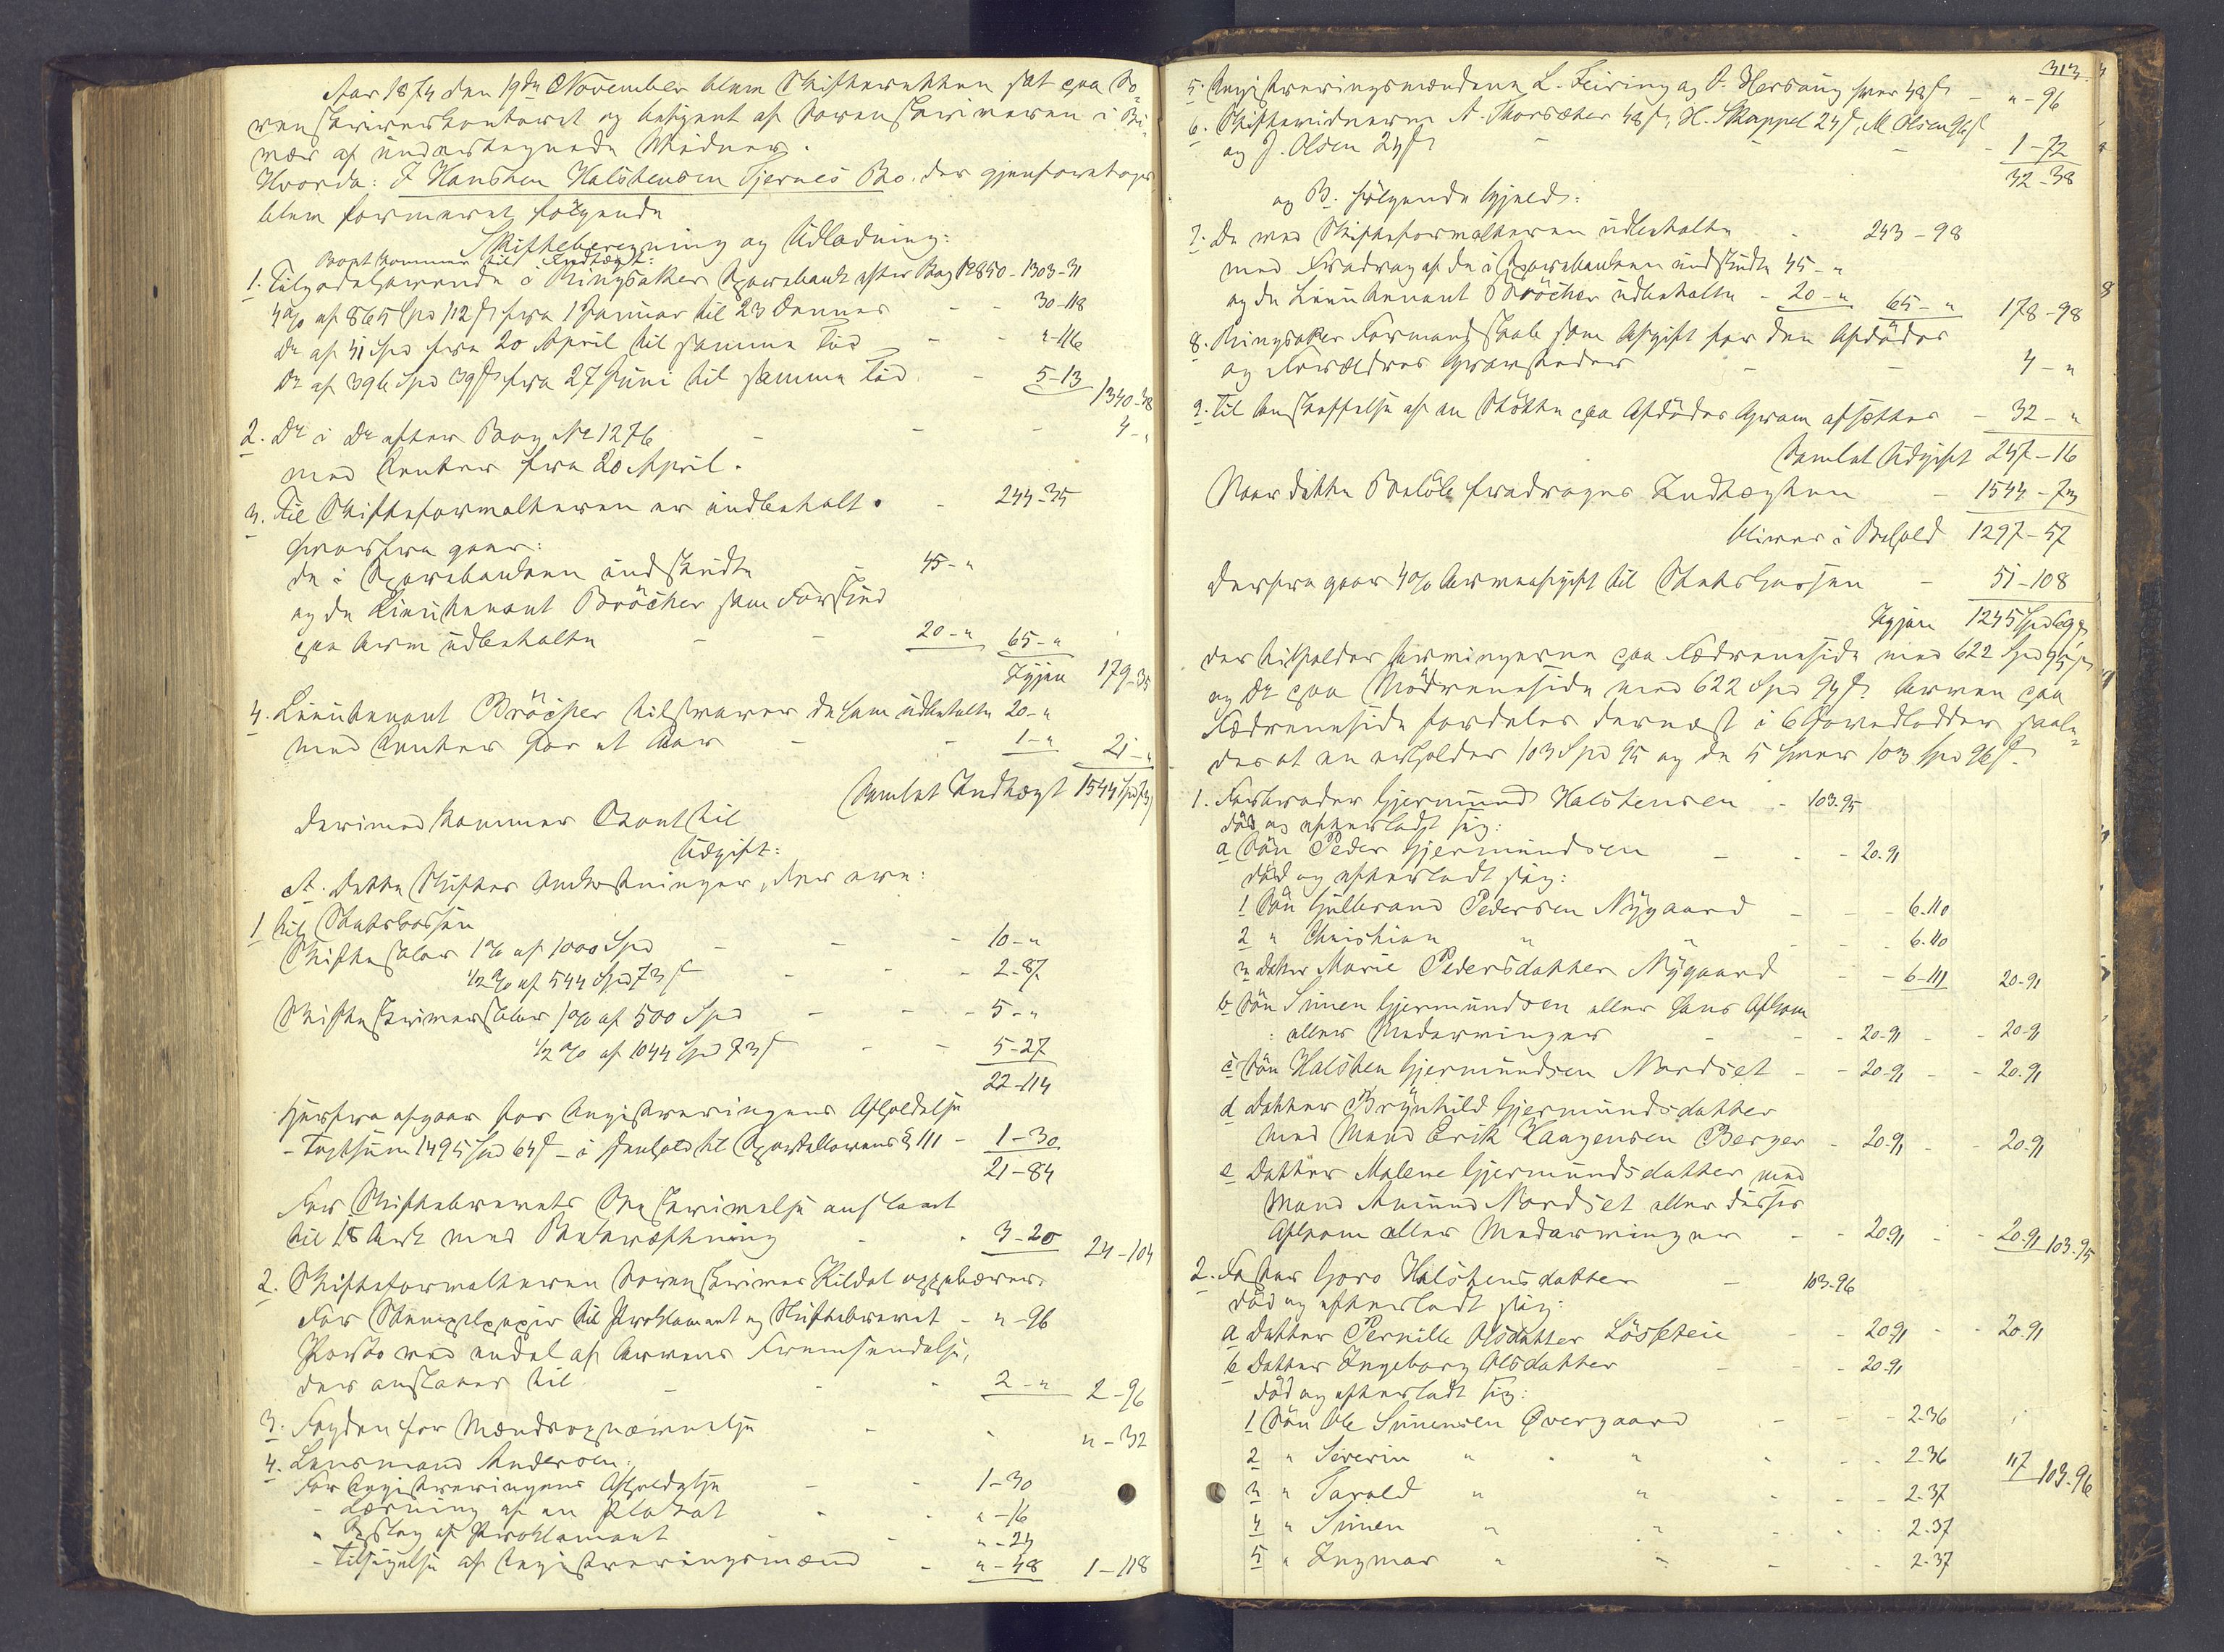 Aar 1874 den 19de November blev Skifteretten sat paa So-
renskriverkontoret og betjent af Sorenskriveren i Overvær
vær af undertegnede Vidner.
Hvorda: I Hansten Halstensen Tjernes Bo. der gjenforetoges
blev formeret følgende
Skifteberegning og Udlodning:
Boet kommer til Indtægt:
1. Tilgodehavende i Ringsaker Sparebank efter Bog 2850 - 1303-31
4% af 865 Spd 112 s fra 1 Januar til 23 dennes - - 30-118
Do af 41 Spd fra 20 April til samme Tid - - "-116
Do af 396 Spd 39 s fra 27 Juni til samme Tid - 5-13 1340-38
2. Do i Do efter Bog No 1276 - - - 4-"
med Renter fra 20 April.
3. Til Skifteforvalteren er indbetalt - 244-35
hvorfra gaar:
de i Sparebanken indskudte - 45-"
og de Lieutenant Bröcher som Forskud
paa Arv udbetalte - - 20-" 65-"
Igjen 179-35
4. Lieutenant Bröcher tilsvarer de ham udbetalte 20-"
med Renter for et Aar - - 1-" 21-"
Samlet Indtægt 1544 Spd 73
Derimod kommer Boet til
Udgift:
A. Dette Skiftes Omkostninger, der ere:
1 til Statskassen
Skiftesalær 1% af 1000 Spd - - - 10-"
1/2% af 544 Spd 73 s - - 2-87
Skifteskriversalær 1% af 500 Spd - - - 5-"
1/2% af 1044 Spd 73 s - - 5-27
22-114
Herfra afgaar for Registreringens Afholdelse
- Taxtsum 1495 Spd 64 s - i Henhold til Sportellovens § 111 - 1-30
21-84
For Skiftebrevets Beskrivelse anslaaet
til 18 Ark med Bekræftning - - 3-20 24-104
2. Skifteforvalteren Sorenskriver Kildal oppebærer:
For Stempelpapir til Proklamaet og Skiftebrevet - "-96
Porto ved endel af Arvens Fremsendelse,
der anslaaes til - - - 2-" 2-96
3. Fogden for Mændsopnævnelse - - "-32
4. Lensmand Andersen:
For Registreringens Afholdelse - - 1-30
- Læsning af en Plakat - - "-16
" Opslag af Proklamaet - - "-24
- Tilsigelse af Registreringsmænd - "-48 1-118
313.
5. Registreringsmændene L. Feiring og O. Hersoug hver 48 s - "-96
6. Skiftevidnerne A. Thorsæter 48 s, H. Skappel 24 s, M. Olsen 96 s
og J. Olsen 24 s - - - 1-72
32-38
og B. følgende Gjeld:
7. De med Skifteforvalteren indbetalte - 243-98
med Fradrag af de i Sparebanken indskudte 45-"
og de Lieutenant Bröcher udbetalte - 20-" 65-" 178-98
8. Ringsaker Formandskab som Afgift for den Afdödes
og Forældres Gravsteder - - 4-"
9. Til Anskaffelse af en Støtte paa Afdödes Grav afsættes - 32-"
Samlet Udgift 247-16
Naar dette Beløb fradrages Indtægten - 1544-73
bliver i Behold 1297-57
Derfra gaar 4% Arveafgift til Statskassen - 51-108
Igjen 1245 Spd 69 s
der tilfalder Arvingerne paa Fædreneside med 622 Spd 95 s
og Do paa Mödreneside med 622 Spd 94 s. Arven paa
Fædreneside fordeles dernæst i 6 Hovedlodder saale-
des at en erholder 103 Spd 95 og de 5 hver 103 Spd 96 s.
1. Farbroder Gjermund Halstensen - 103-95
död og efterladt sig:
a Sön Peder Gjermundsen - - - 20-91
död og efterladt sig:
1 Sön Gulbrand Pedersen Nÿgaard - - - 6-110
2 " Christian " " - - - 6-110
3 Datter Marie Pedersdatter Nÿgaard - - 6-111 20-91
b Sön Simen Gjermundsen eller hans Afkom
: eller Medarvinger - - - 20-91 - - 20-91
c Sön Halsten Gjermundsen Nordset - - 20-91 - - 20-91
d Datter Brÿnhild Gjermundsdatter
med Mand Erik Haagensen Berger - 20-91 - - 20-91
e Datter Malene Gjermundsdatter med
Mand Amund Nordset eller disses
Afkom eller Medarvinger - - 20-91 - - 20-91 103-95
2. Faster Goro Halstensdatter - 103-96
död og efterladt sig:
a Datter Pernille Olsdatter Lösseteie - - 20-91 - - 20-91
b Datter Ingeborg Olsdatter - - - 20-91
död og efterladt sig:
1 Sön Ole Simensen Øvergaard - - - 2-36
2 " Siverin " " - - - 2-36 117 103-96
3 " Tarald " " - - - 2-37
4 " Simen " " - - - 2-37
5 " Ingmar " " - - - 2-37